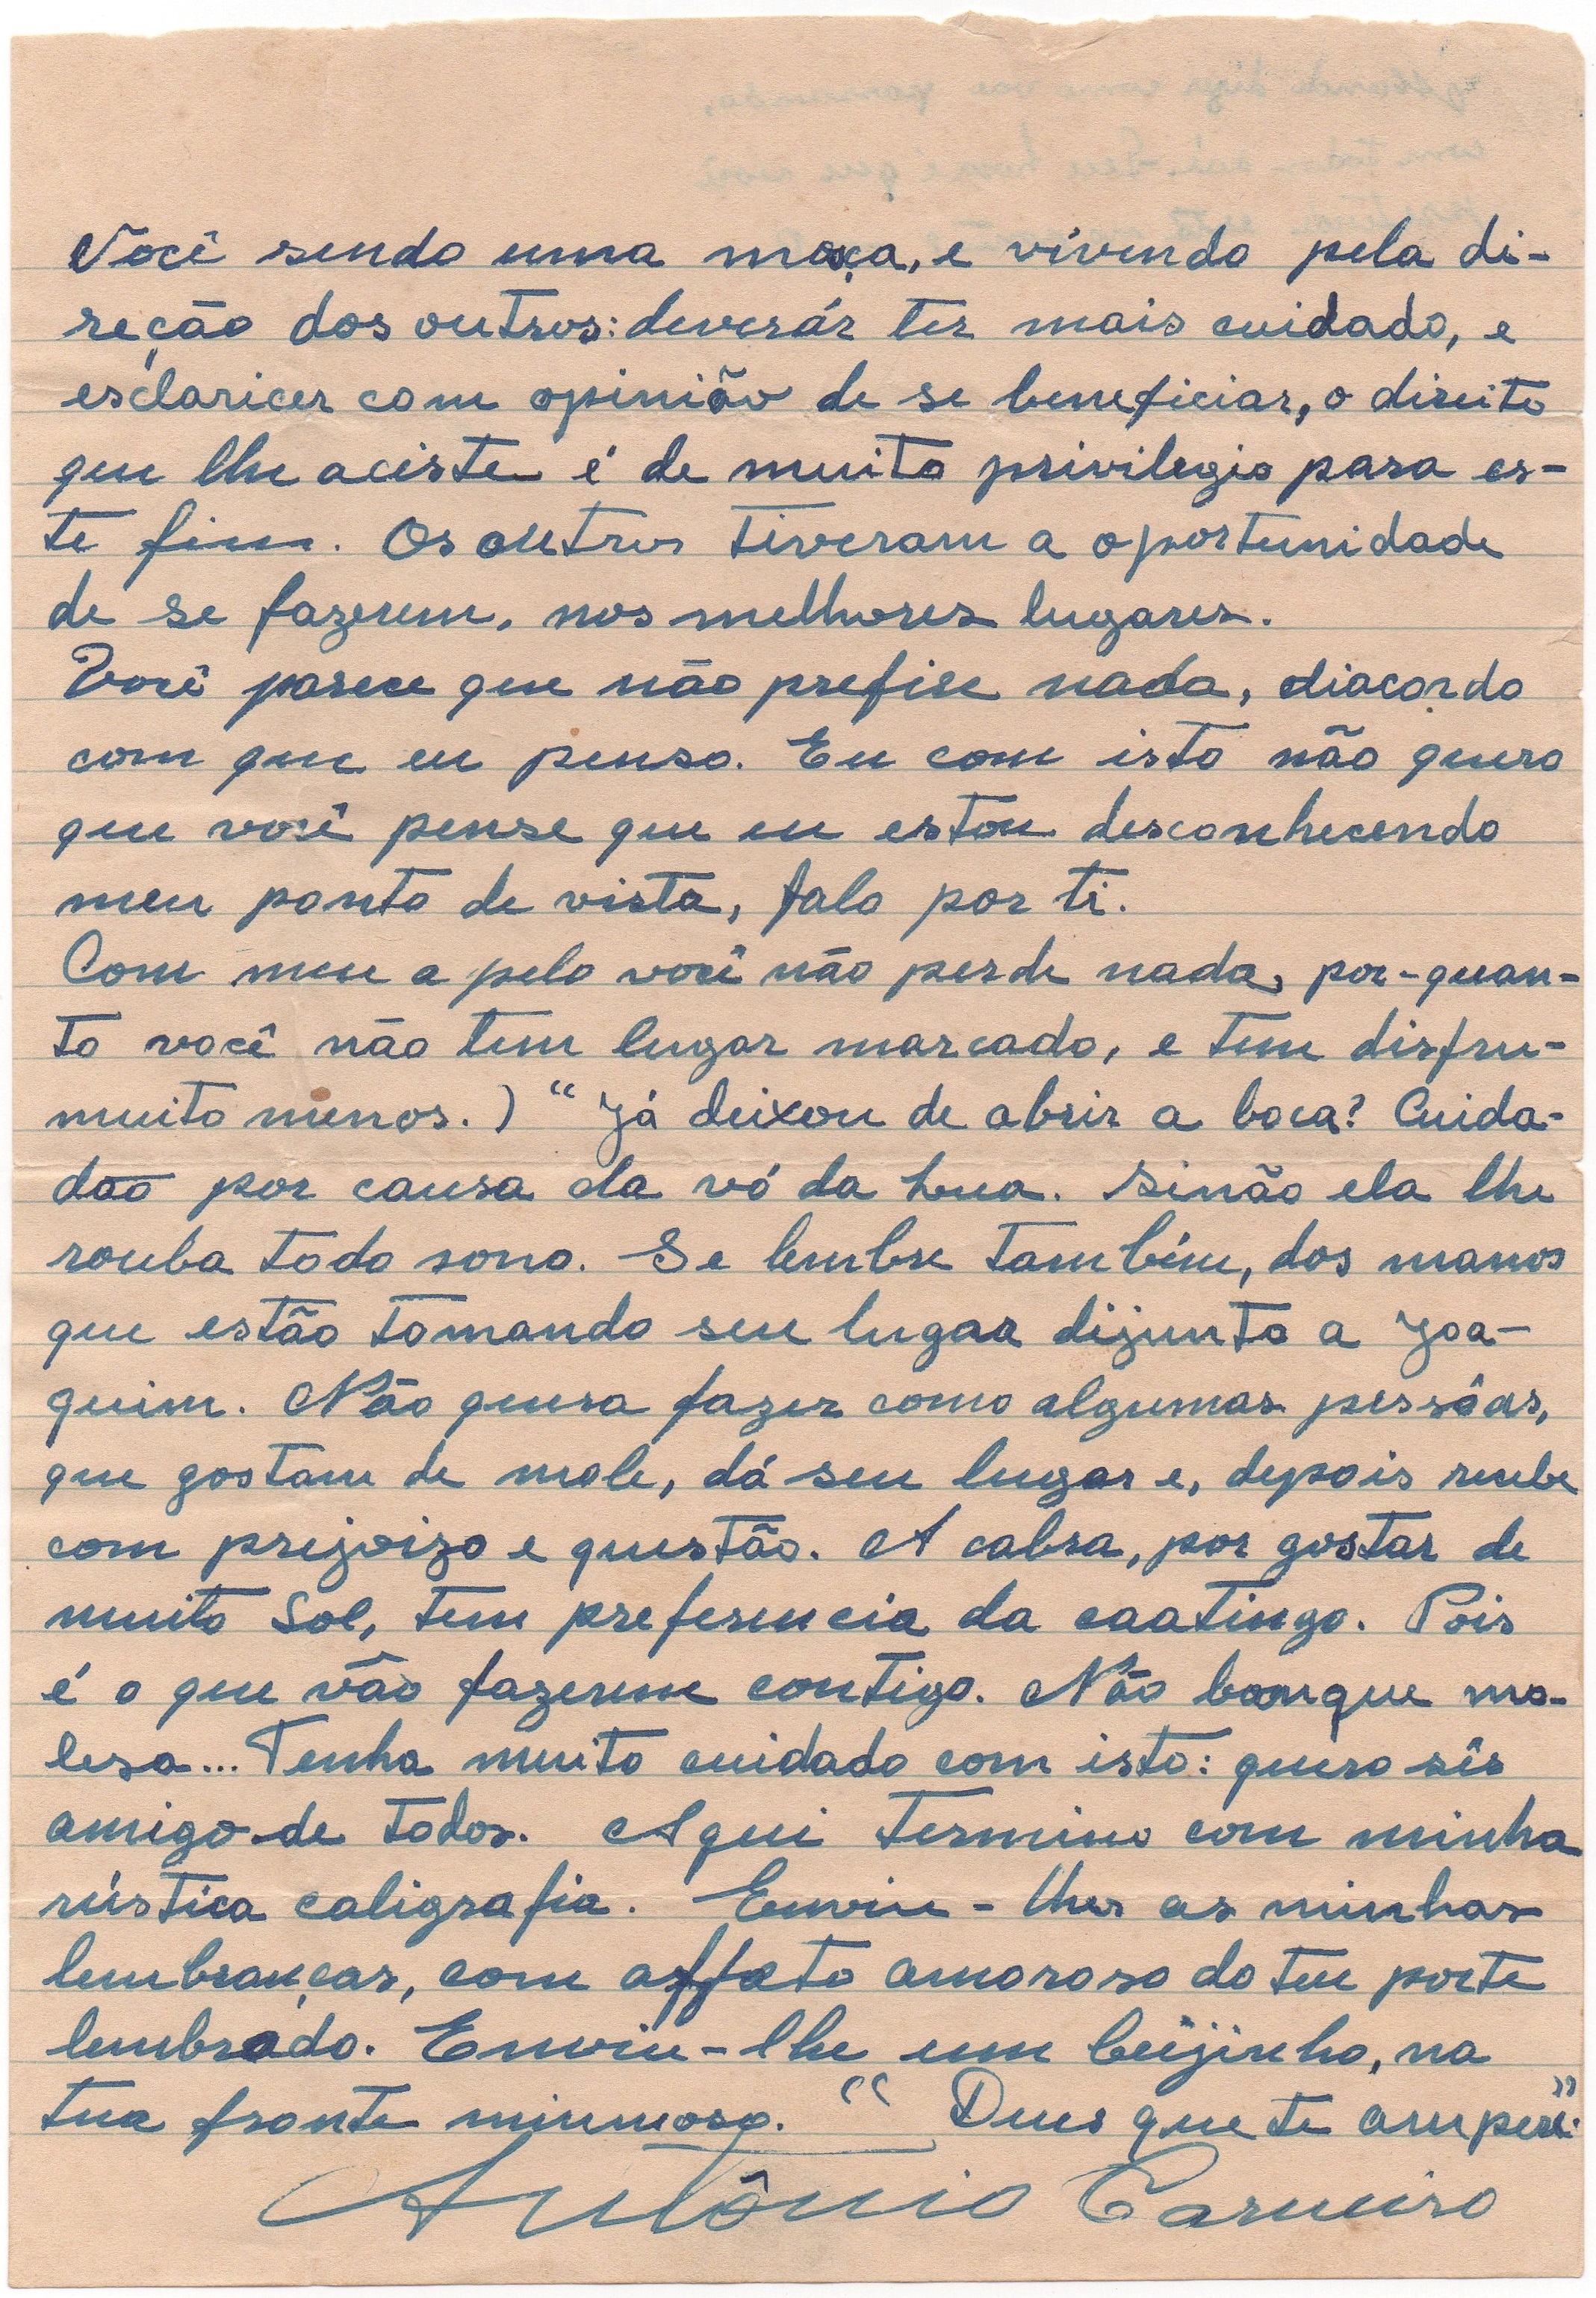 Você sendo uma moça, e vivendo pela di-
reção dos outros: deverár ter mais cuidado, e
esclaricer com opinião de se beneficiar, o direito
que lhe aciste é de muito privilegio para es-
te fim. Os outros tiveram a oportunidade
de se fazerem, nos melhores lugares.
Você parece que não prefise nada, diacordo
com que eu penso. Eu com isto não quero
que você pense que eu estou desconhecendo
meu ponto de vista, falo por ti.
Com meu a pelo você não perde nada, por-quan-
to você não tem lugar marcado, e tem disfru-
muito menos.) "Já deixou de abrir a boca? Cuida-
dao por causa da vó da Lua. Sinão ela lhe
rouba todo sono. Se lembre também, dos manos
que estão tomando seu lugar dijunto a Joa-
quim. Não quera fazer como algumas pessôas,
que gostam de mole, dá seu lugar e, depois recebe
com prejoizo e questão. A cabra, por gostar de
muito Sol, tem preferencia da caatinga. Pois
é o que vão fazerem contigo. Não banque mo-
lesa... Tenha muito cuidado com isto: quero sês
amigo de todos. Aqui termino com minha
rústica caligrafia. Envio-lhes as minhas
lembranças, com affeto amoroso do teu porte
lembrado. Envio-lhe um beijinho, na
tua fronte mimosa. "Deus que te ampere"
Antônio Carneiro